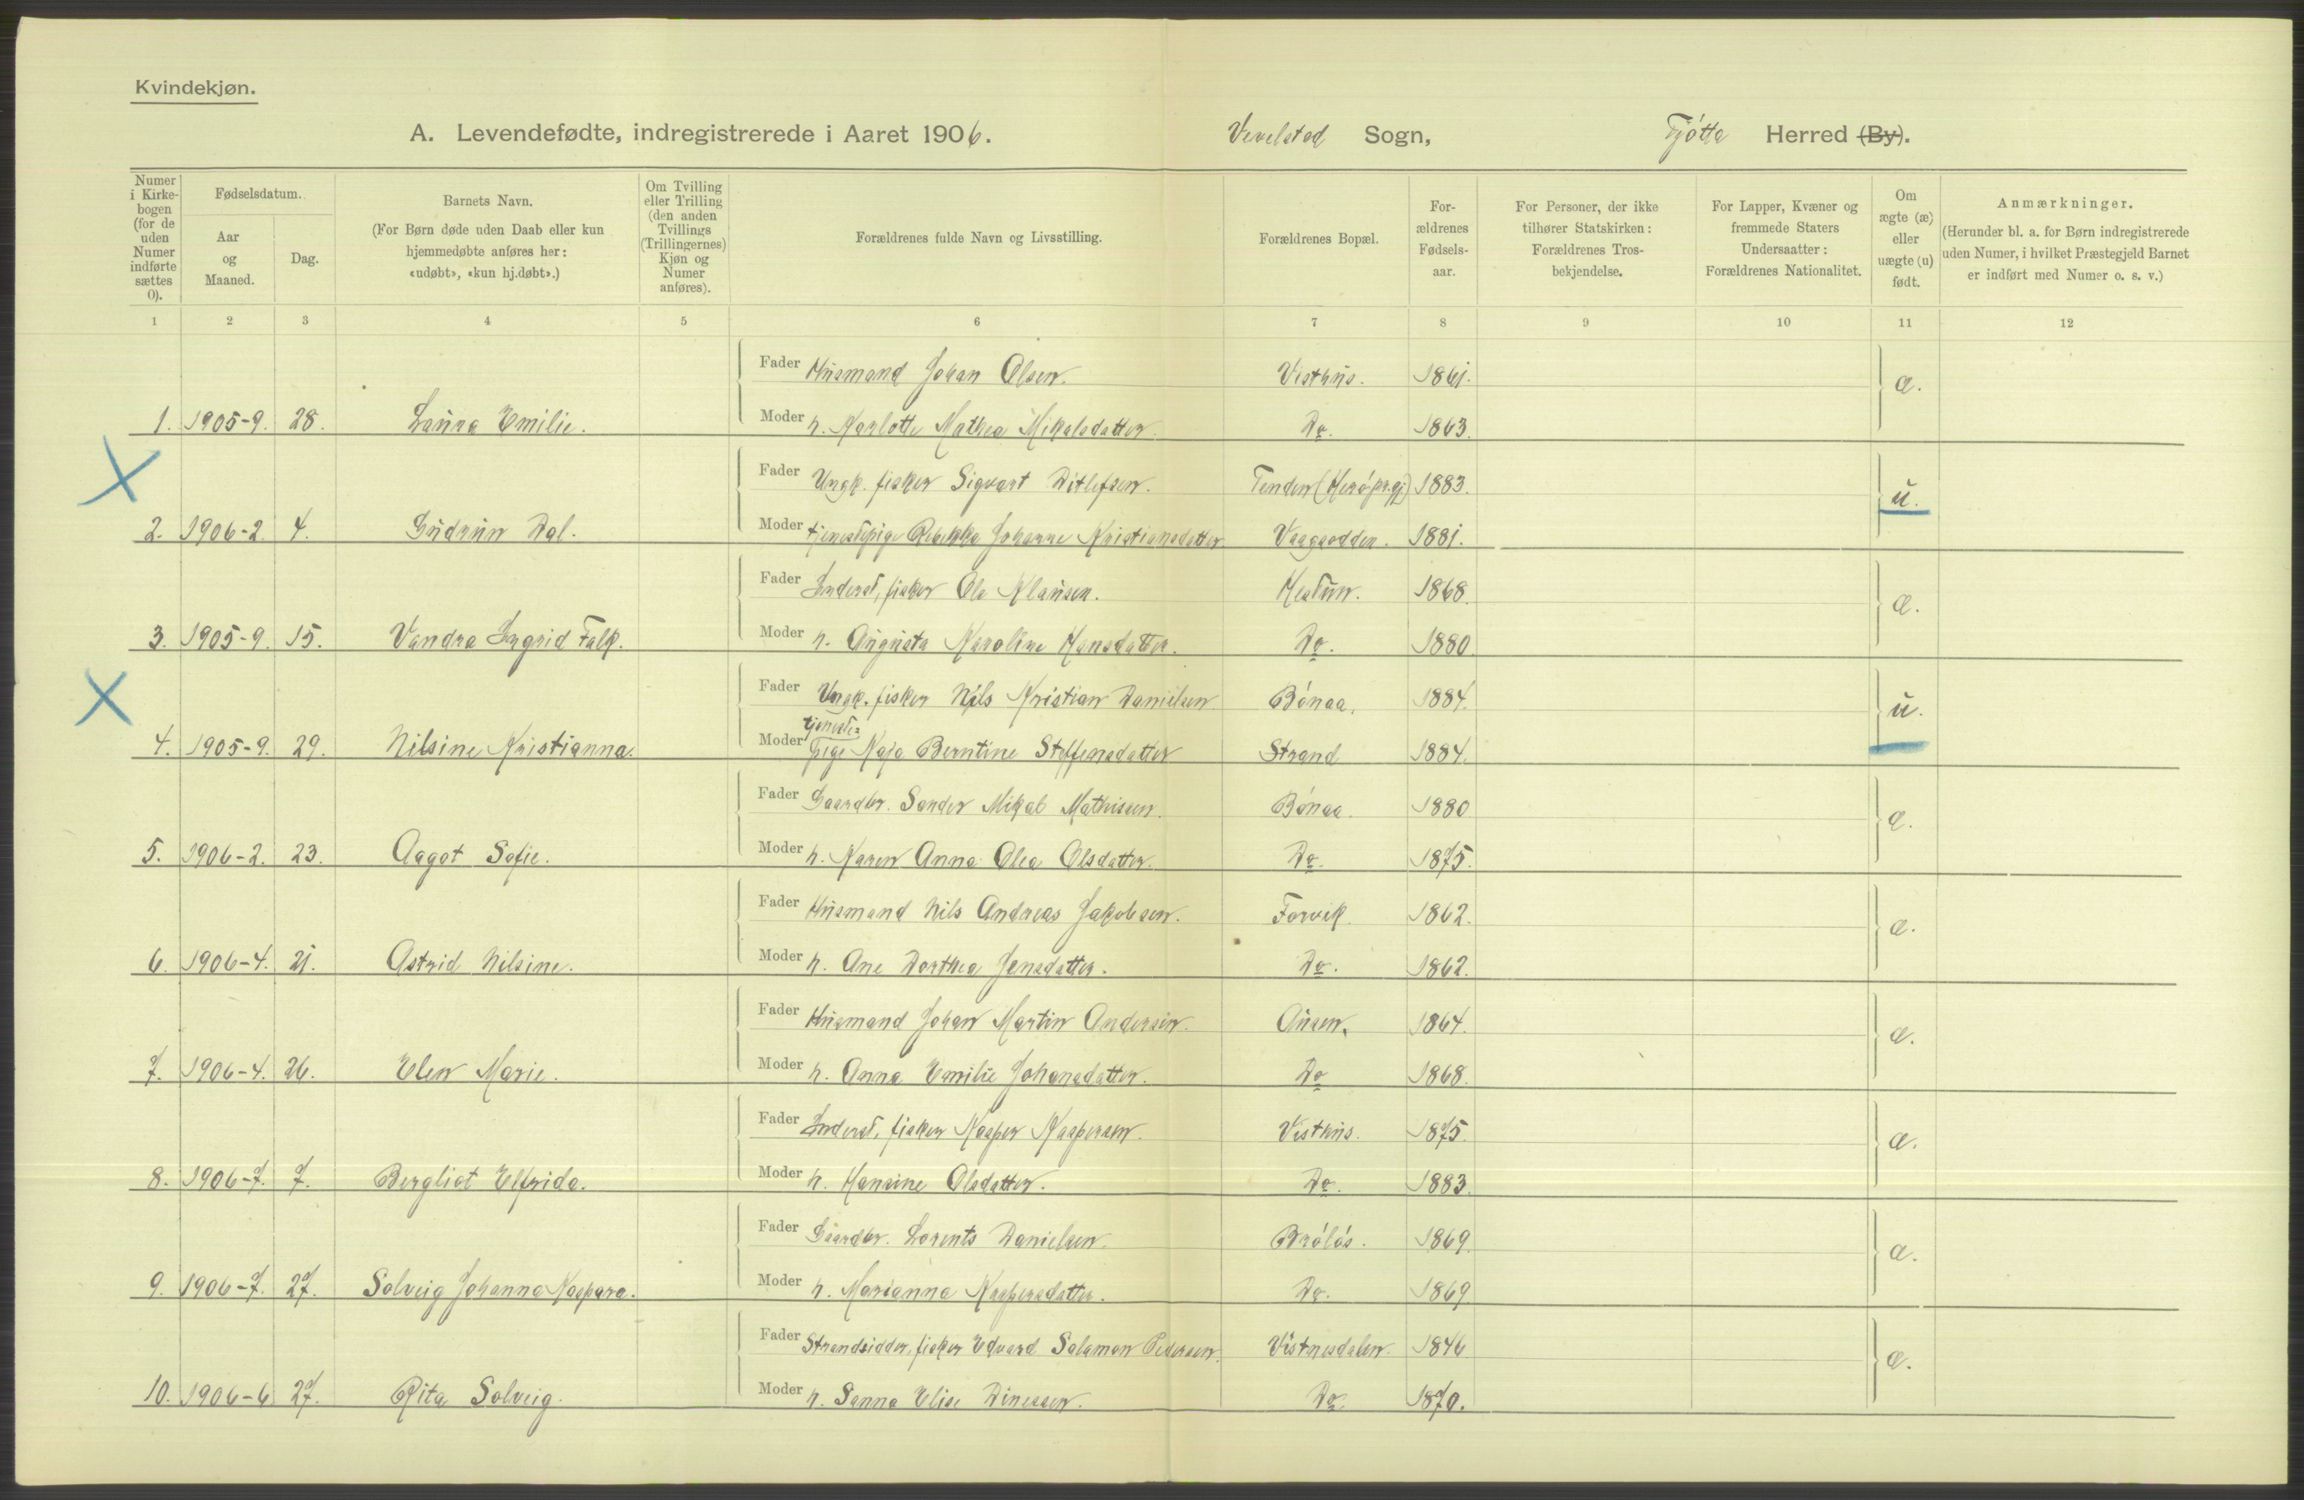 Kvindekjøn.
A. Levendefødte, indregistrerede i Aaret 1906. Vevelstad Sogn, Tjøtta Herred (By).
Numer i Kirkebogen (for de uden Numer indførte sættes 0).
Fødselsdatum.
Aar og Maaned.
Dag.
Barnets Navn.
(For Børn døde uden Daab eller kun hjemmedøbte anføres her: «udøbt», «kun hj.døbt».)
Om Tvilling eller Trilling (den anden Tvillings (Trillingernes) Kjøn og Numer anføres).
Forældrenes fulde Navn og Livsstilling.
Forældrenes Bopæl.
For-ældrenes Fødsels-aar.
For Personer, der ikke tilhører Statskirken: Forældrenes Tros-bekjendelse.
For Lapper, Kvæner og fremmede Staters Undersaatter: Forældrenes Nationalitet.
Om ægte (æ) eller uægte (u) født.
Anmærkninger.
(Herunder bl. a. for Børn indregistrerede uden Numer, i hvilket Præstegjeld Barnet er indført med Numer o. s. v.)
1 2 3 4 5 6 7 8 9 10 11 12
Fader Husmand Johan Olsen. Visthus. 1861. æ.
1. 1905-9. 28. Laura Emilie. Moder h. Karlotte Mathea Mikalsdatter. Do. 1863.
Fader Ungk. fisker Sigvart Ditlefsen. Tenden (Herø pr.gj) 1883. u.
2. 1906-2. 4. Gudrun Dal. Moder tjenestepige Rebekka Johanne Kristiansdatter. Vaagsodden. 1881.
Fader Inderst, fisker Ole Klausen. Hestun. 1868. æ.
3. 1905-9. 15. Vandra Ingrid Falk. Moder h. Augusta Karoline Hansdatter. Do. 1880.
Fader Ungk. fisker Nils Kristian Danielsen Bónaa. 1884. u.
4. 1905-9. 29. Nilsine Kristianna. Moder tjeneste-pige Kaja Berntine Steffensdatter Strand 1884.
Fader Gaardbr. Sander Mikal Mathissen. Bónaa. 1880 æ.
5. 1906-2. 23. Aagot Sofie. Moder h. Karen Anna Olea Olsdatter. Do. 1875.
Fader Husmand Nils Andreas Jakobsen. Forvik. 1862. æ.
6. 1906-4. 21. Astrid Nilsine. Moder h. Ane Dorthea Jensdatter. Do. 1862.
Fader Husmand Johan Martin Andersen. Ausen. 1864. æ.
7. 1906-4. 26. Elen Marie. Moder h. Anna Emilie Johansdatter. Do 1868.
Fader Inderst, fisker Kasper Kaspersen. Visthus. 1875. æ.
8. 1906-7. 7. Bergliot Elfrida. Moder h. Hansine Olsdatter. Do. 1883.
Fader Gaardbr. Lorents Danielsen. Brólós. 1869. æ.
9. 1906-7. 27. Solveig Johanna Kaspara. Moder h. Marianna Kaspersdatter. Do. 1869
Fader Strandsidder, fisker Edvard Salamon Pedersen. Vistnesdalen. 1846 æ.
10. 1906-6 27. Rita Solveig. Moder h. Sanna Elise Dinessen. Do. 1870.